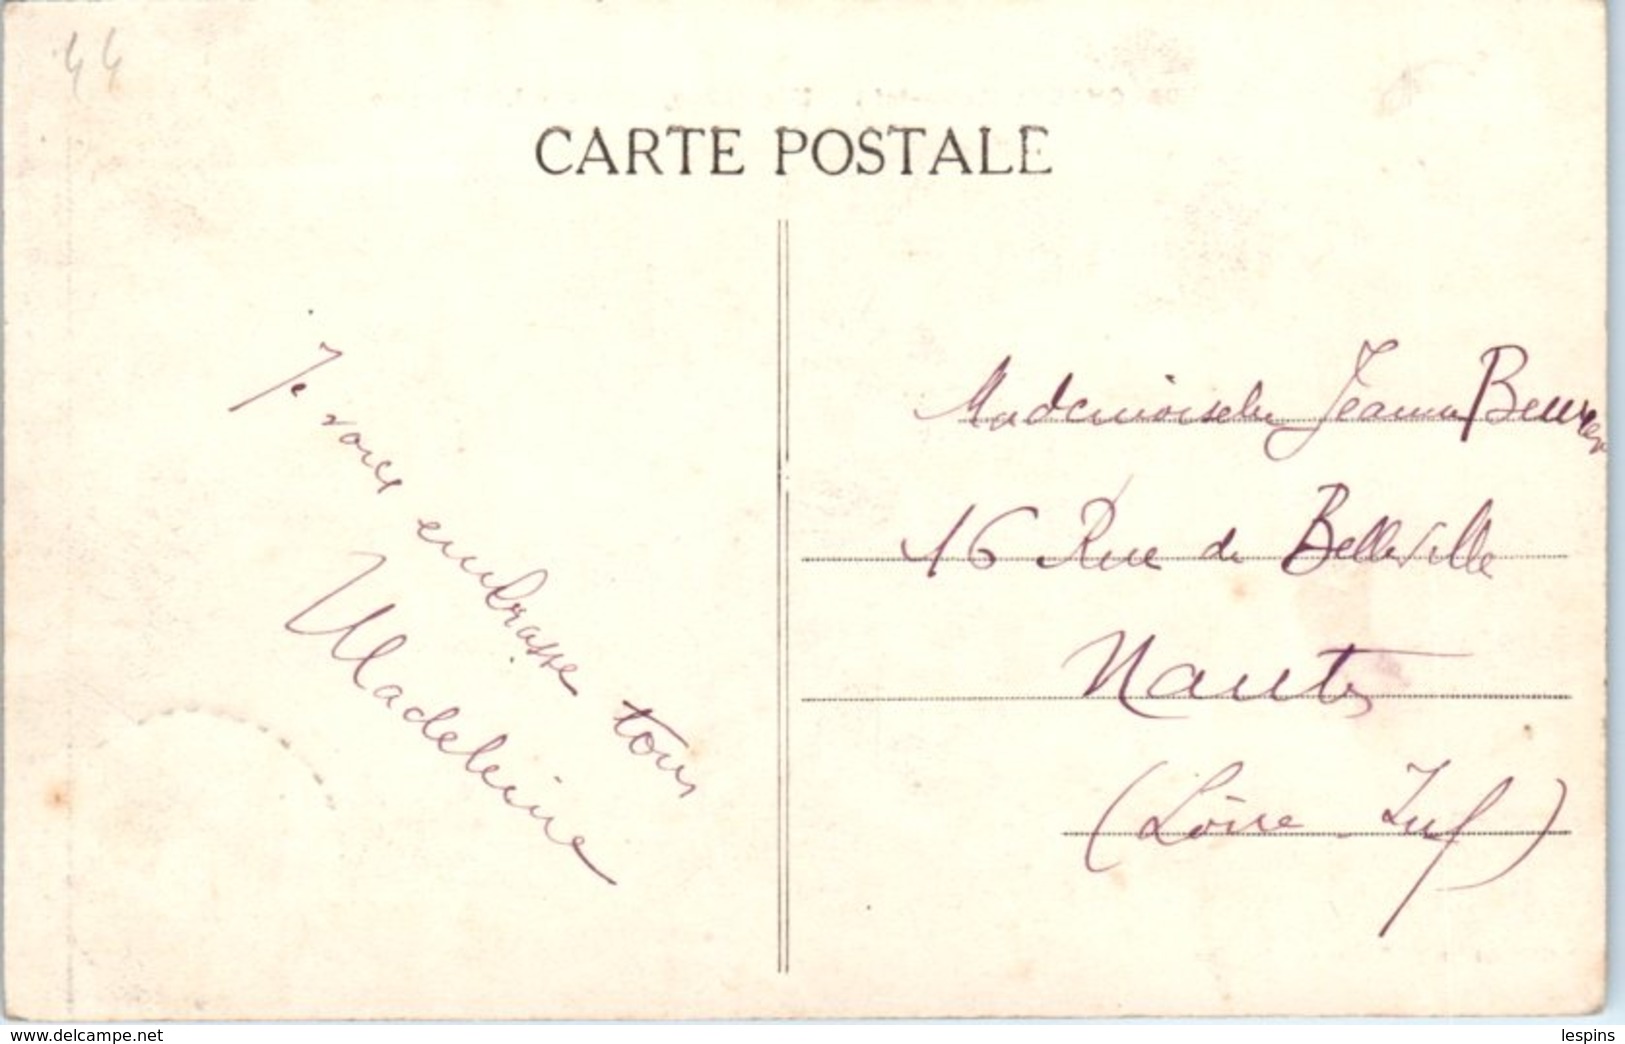 44
CARTE POSTALE
Je vous embrasse tous
Madeleine
Mademoiselle Jeanne
16 Rue de Belleville
Nantes
(Loire Inf)
www.delcampe.net
lespins